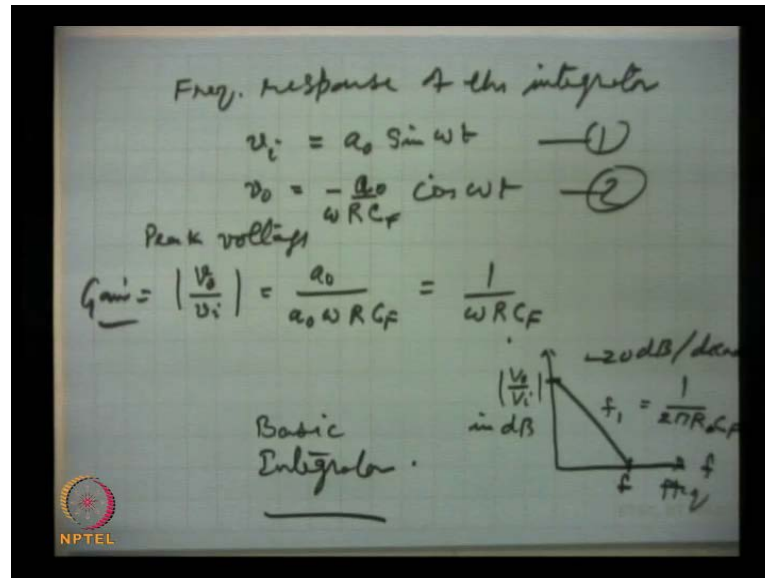 Freq. response of the integrator
v_i = a_0 Sin ωt —①
v_0 = - a_0 / ωRC_F Cos ωt —②
Peak voltage
Gain = |v_0 / v_i| = a_0 / a_0 ω R C_F = 1 / ω R C_F
-20 dB/decad
|V_0 / V_i| in dB
f_1 = 1 / 2πR C_F
f f
freq
Basic
Integrator.
NPTEL